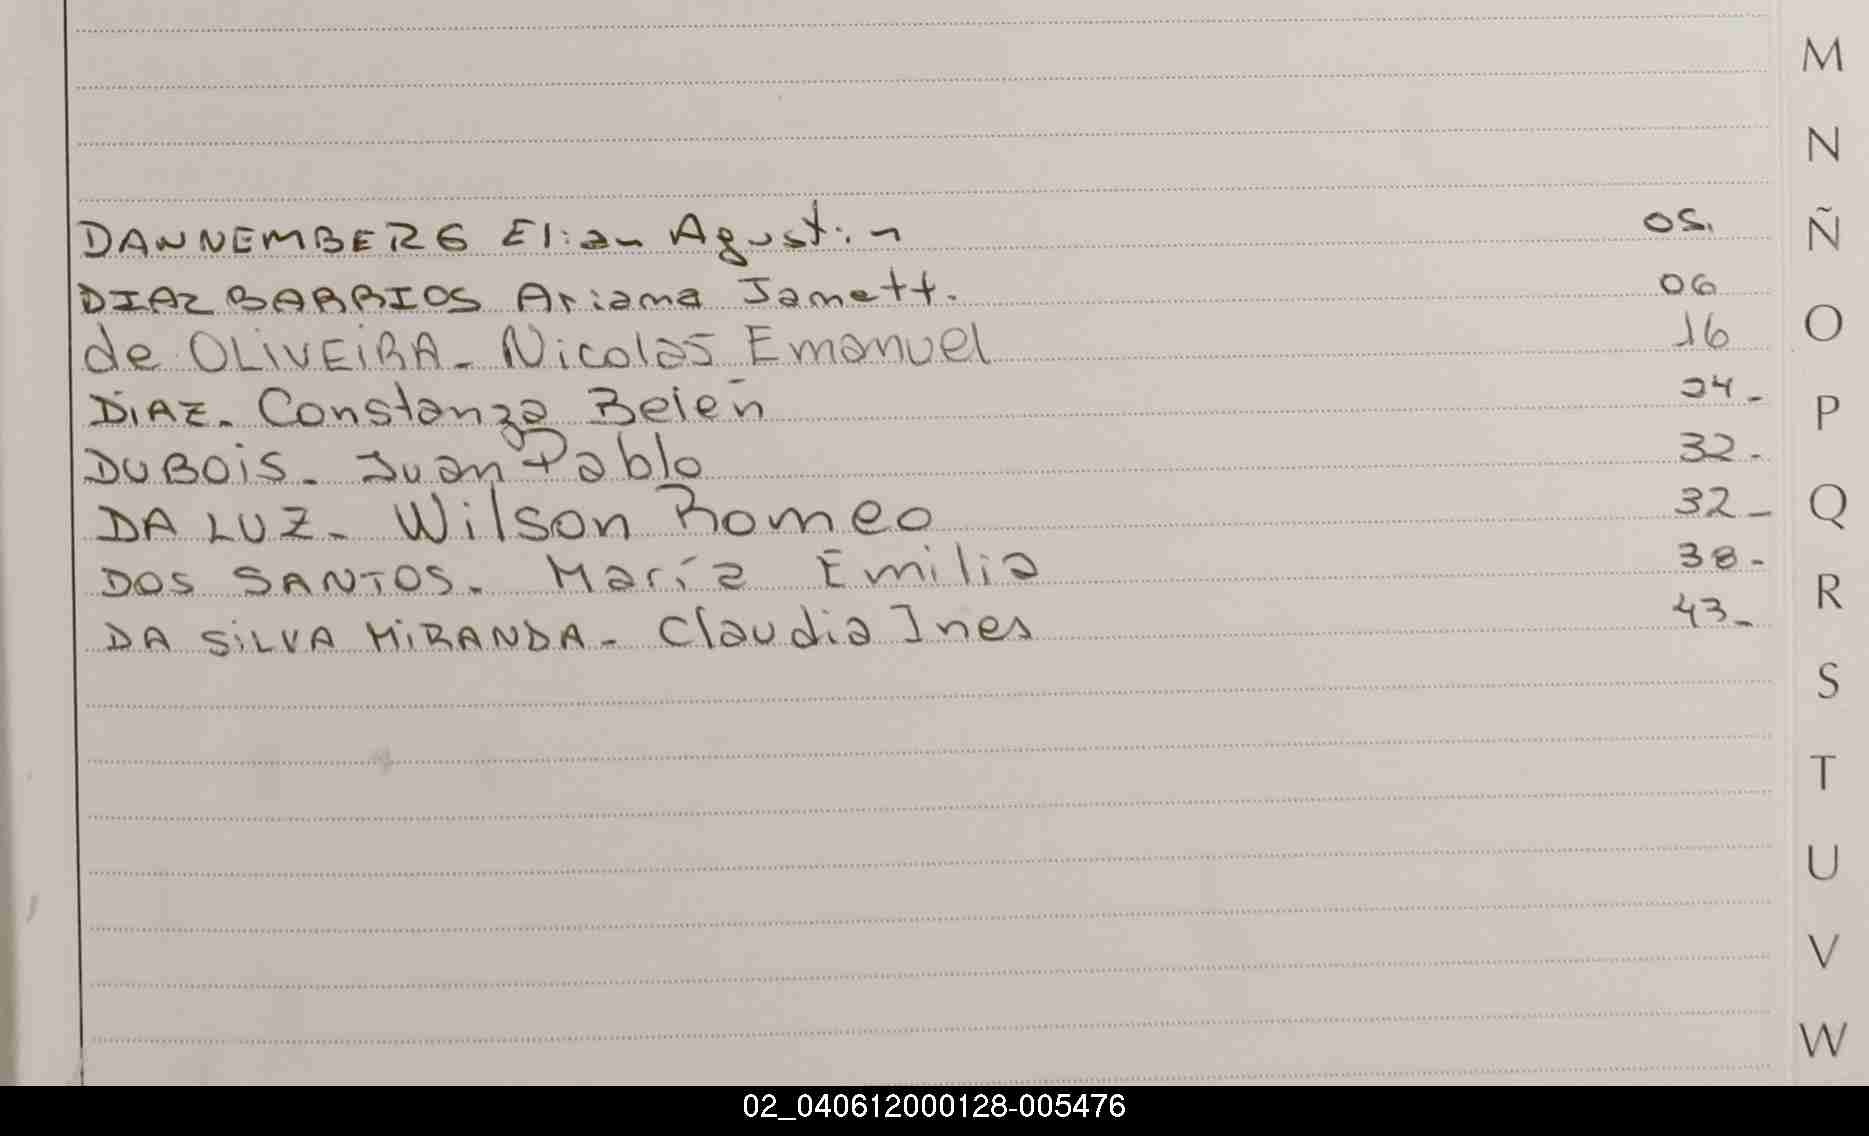 DANNEMBERG Elian Agustin 05.
DIAZ BARRIOS Ariana Jamett. 06
de OLIVEIRA - Nicolas Emanuel 16
DIAZ - Constanza Belén 24 -
DUBOIS - Juan Pablo 32 -
DA LUZ - Wilson Romeo 32 -
DOS SANTOS - María Emilia 38 -
DA SILVA MIRANDA - Claudia Ines 43 -
M
N
Ñ
O
P
Q
R
S
T
U
V
W
02_040612000128-005476